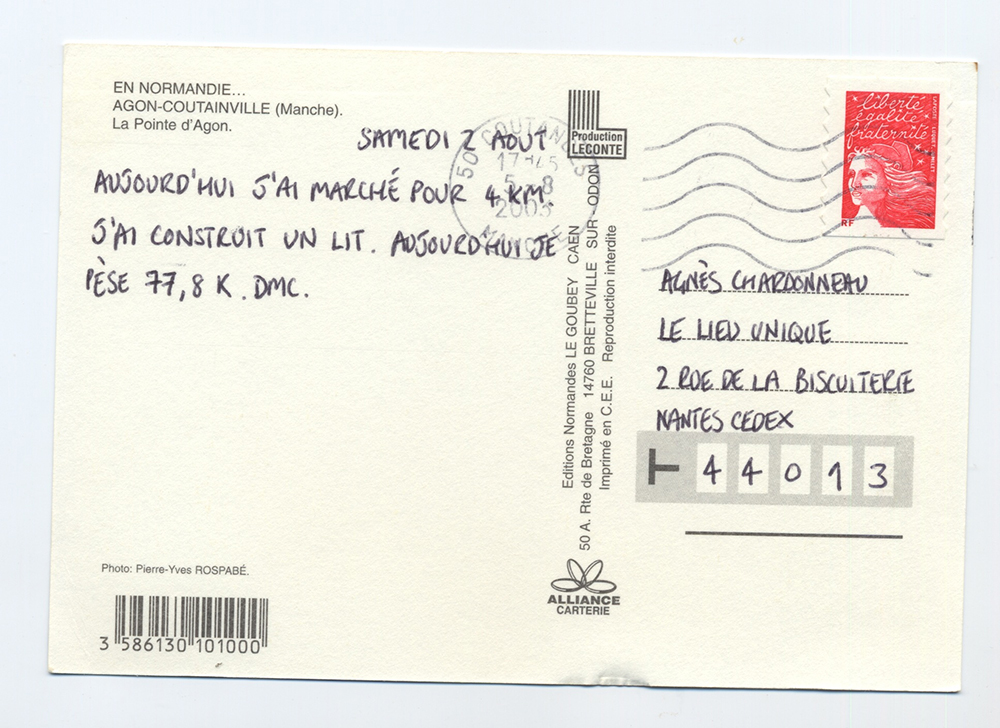 EN NORMANDIE...
AGON-COUTAINVILLE (Manche).
La Pointe d'Agon.
SAMEDI 2 AOUT
AUJOURD'HUI J'AI MARCHÉ POUR 4 KM.
J'AI CONSTRUIT UN LIT. AUJOURD'HUI JE
PÈSE 77,8 K. DMC.
Photo: Pierre-Yves ROSPABÉ.
3 586130 101000
Production
LECONTE
50 COUTANCES
17H45
5-8
2003
MANCHE
Editions Normandes LE GOUBEY CAEN
50 A. Rte de Bretagne 14760 BRETTEVILLE SUR ODON
Imprimé en C.E.E. Reproduction interdite
ALLIANCE
CARTERIE
liberté
égalité
fraternité
RF
AGNÈS CHARDONNEAU
LE LIEU UNIQUE
2 RUE DE LA BISCUITERIE
NANTES CEDEX
44013